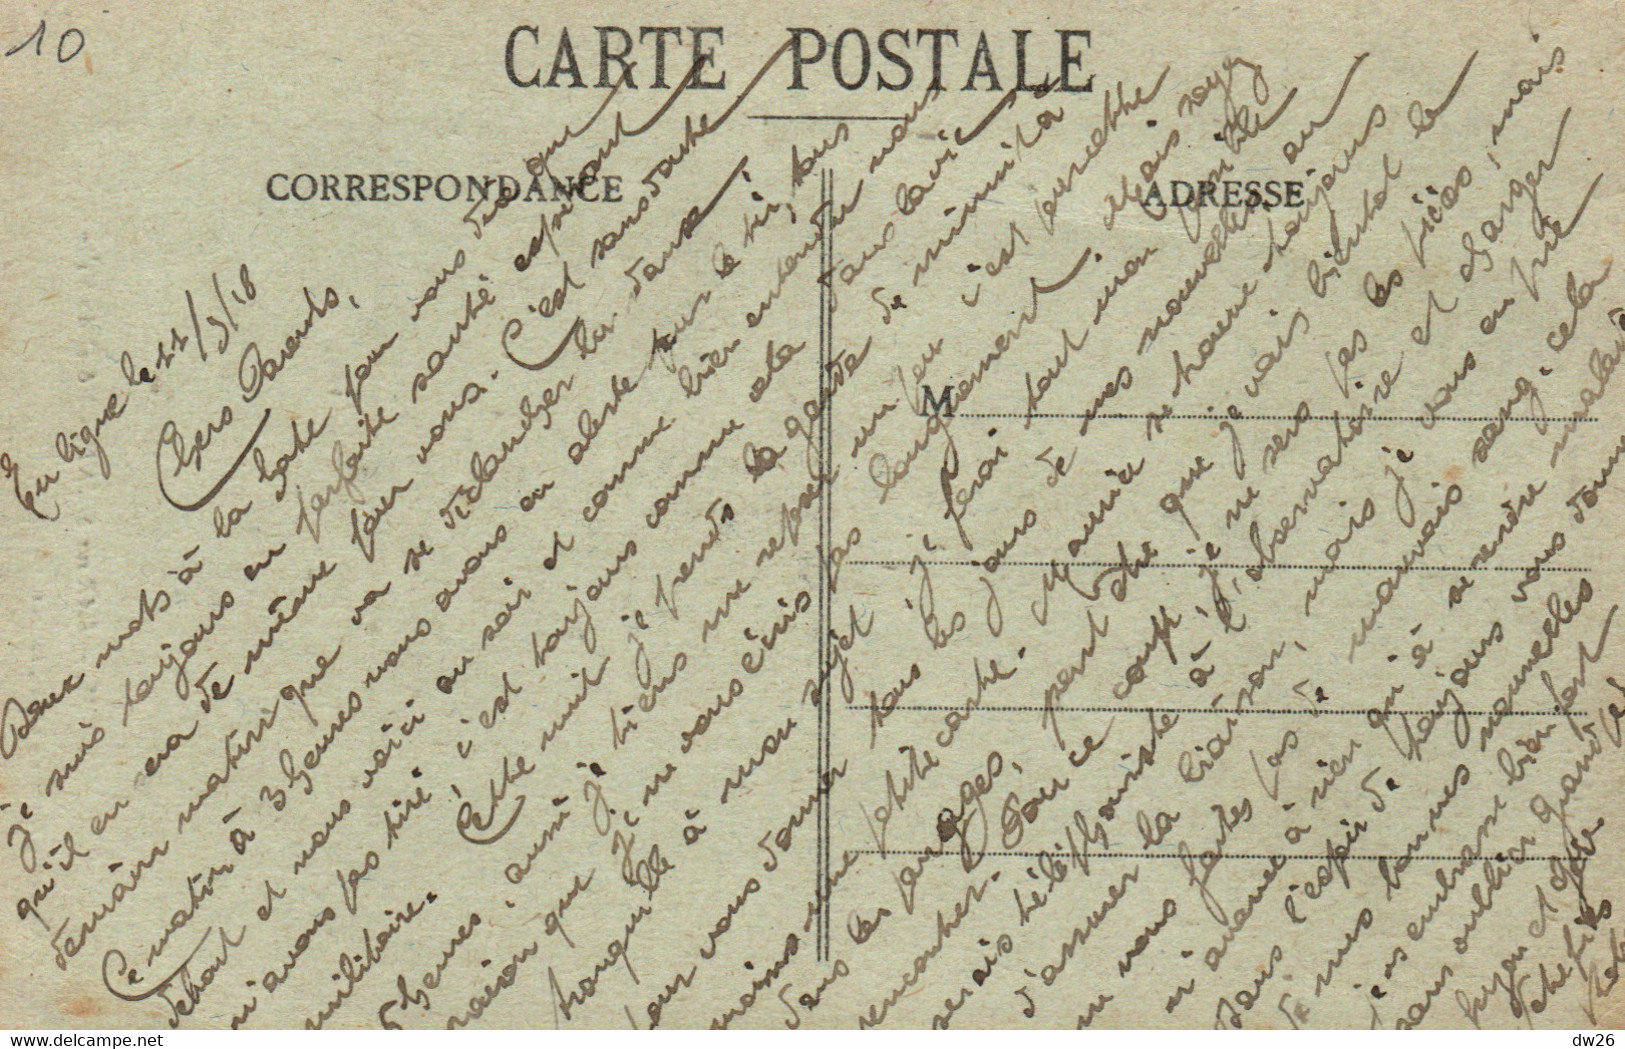 10
CARTE POSTALE
CORRESPONDANCE
ADRESSE
M
En ligne le 11/3/18
Chers Parents,
Deux mots à la hâte pour vous dire que
je suis toujours en parfaite santé espérant
qu'il en est de même pour vous. C'est sans doute
demain matin que va se déclancher la danse.
Ce matin à 3 heures nous avons eu alerte pour le tir, tous
debout et nous voici au soir et comme bien entendu nous
n'avons pas tiré c'est toujours comme cela dans la vie
militaire. Cette nuit je prends la garde de minuit à
heures, aussi je tiens me reposer un peu c'est pourquoi
raison que je ne vous écris pas longuement. Mais soyez
tranquille à mon sujet je ferai tout mon possible
pour vous donner tous les jours de mes nouvelles au
moins une petite carte. Maurice se trouve toujours
dans les parages, peut être que je vais bientôt le
rencontrer. Pour ce coup, je ne sers pas les pièces, mais
serais téléphoniste à l'observatoire et charger
d'assurer la liaison, mais je vous en prie
ne vous faites pas de mauvais sang, cela
n'avance à rien qu'à se rendre malade
Dans l'espoir de toujours vous donner
de mes bonnes nouvelles
je vous embrasse bien fort
sans oublier grand